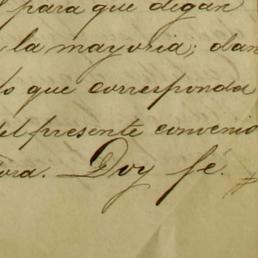 para que digan
la mayoria; dan
lo que corresponda
del presente convenio
ora. Doy fé.